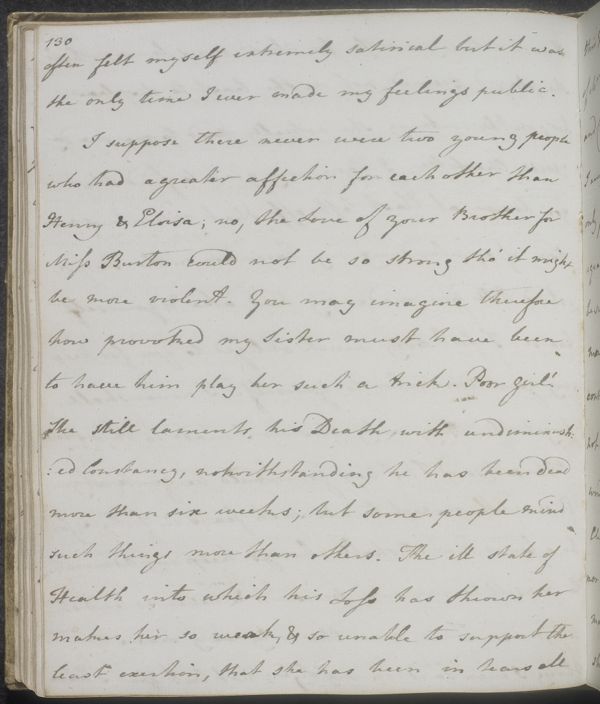 130
often felt myself extremely satirical but it was
the only time I ever made my feelings public.
I suppose there never were two young people
who had a greater affection for each other than
Henry & Eloisa; no, the Love of your Brother for
Miss Burton could not be so strong tho' it might
be more violent. You may imagine therefore
how provoked my Sister must have been
to have him play her such a trick. Poor girl!
She still laments his Death with undiminish:
:ed Constancy, notwithstanding he has been dead
more than six weeks; but some people mind
such things more than others. The ill state of
Health into which his Loss has thrown her
makes her so weak, & so unable to support the
least exertion, that she has been in tears all